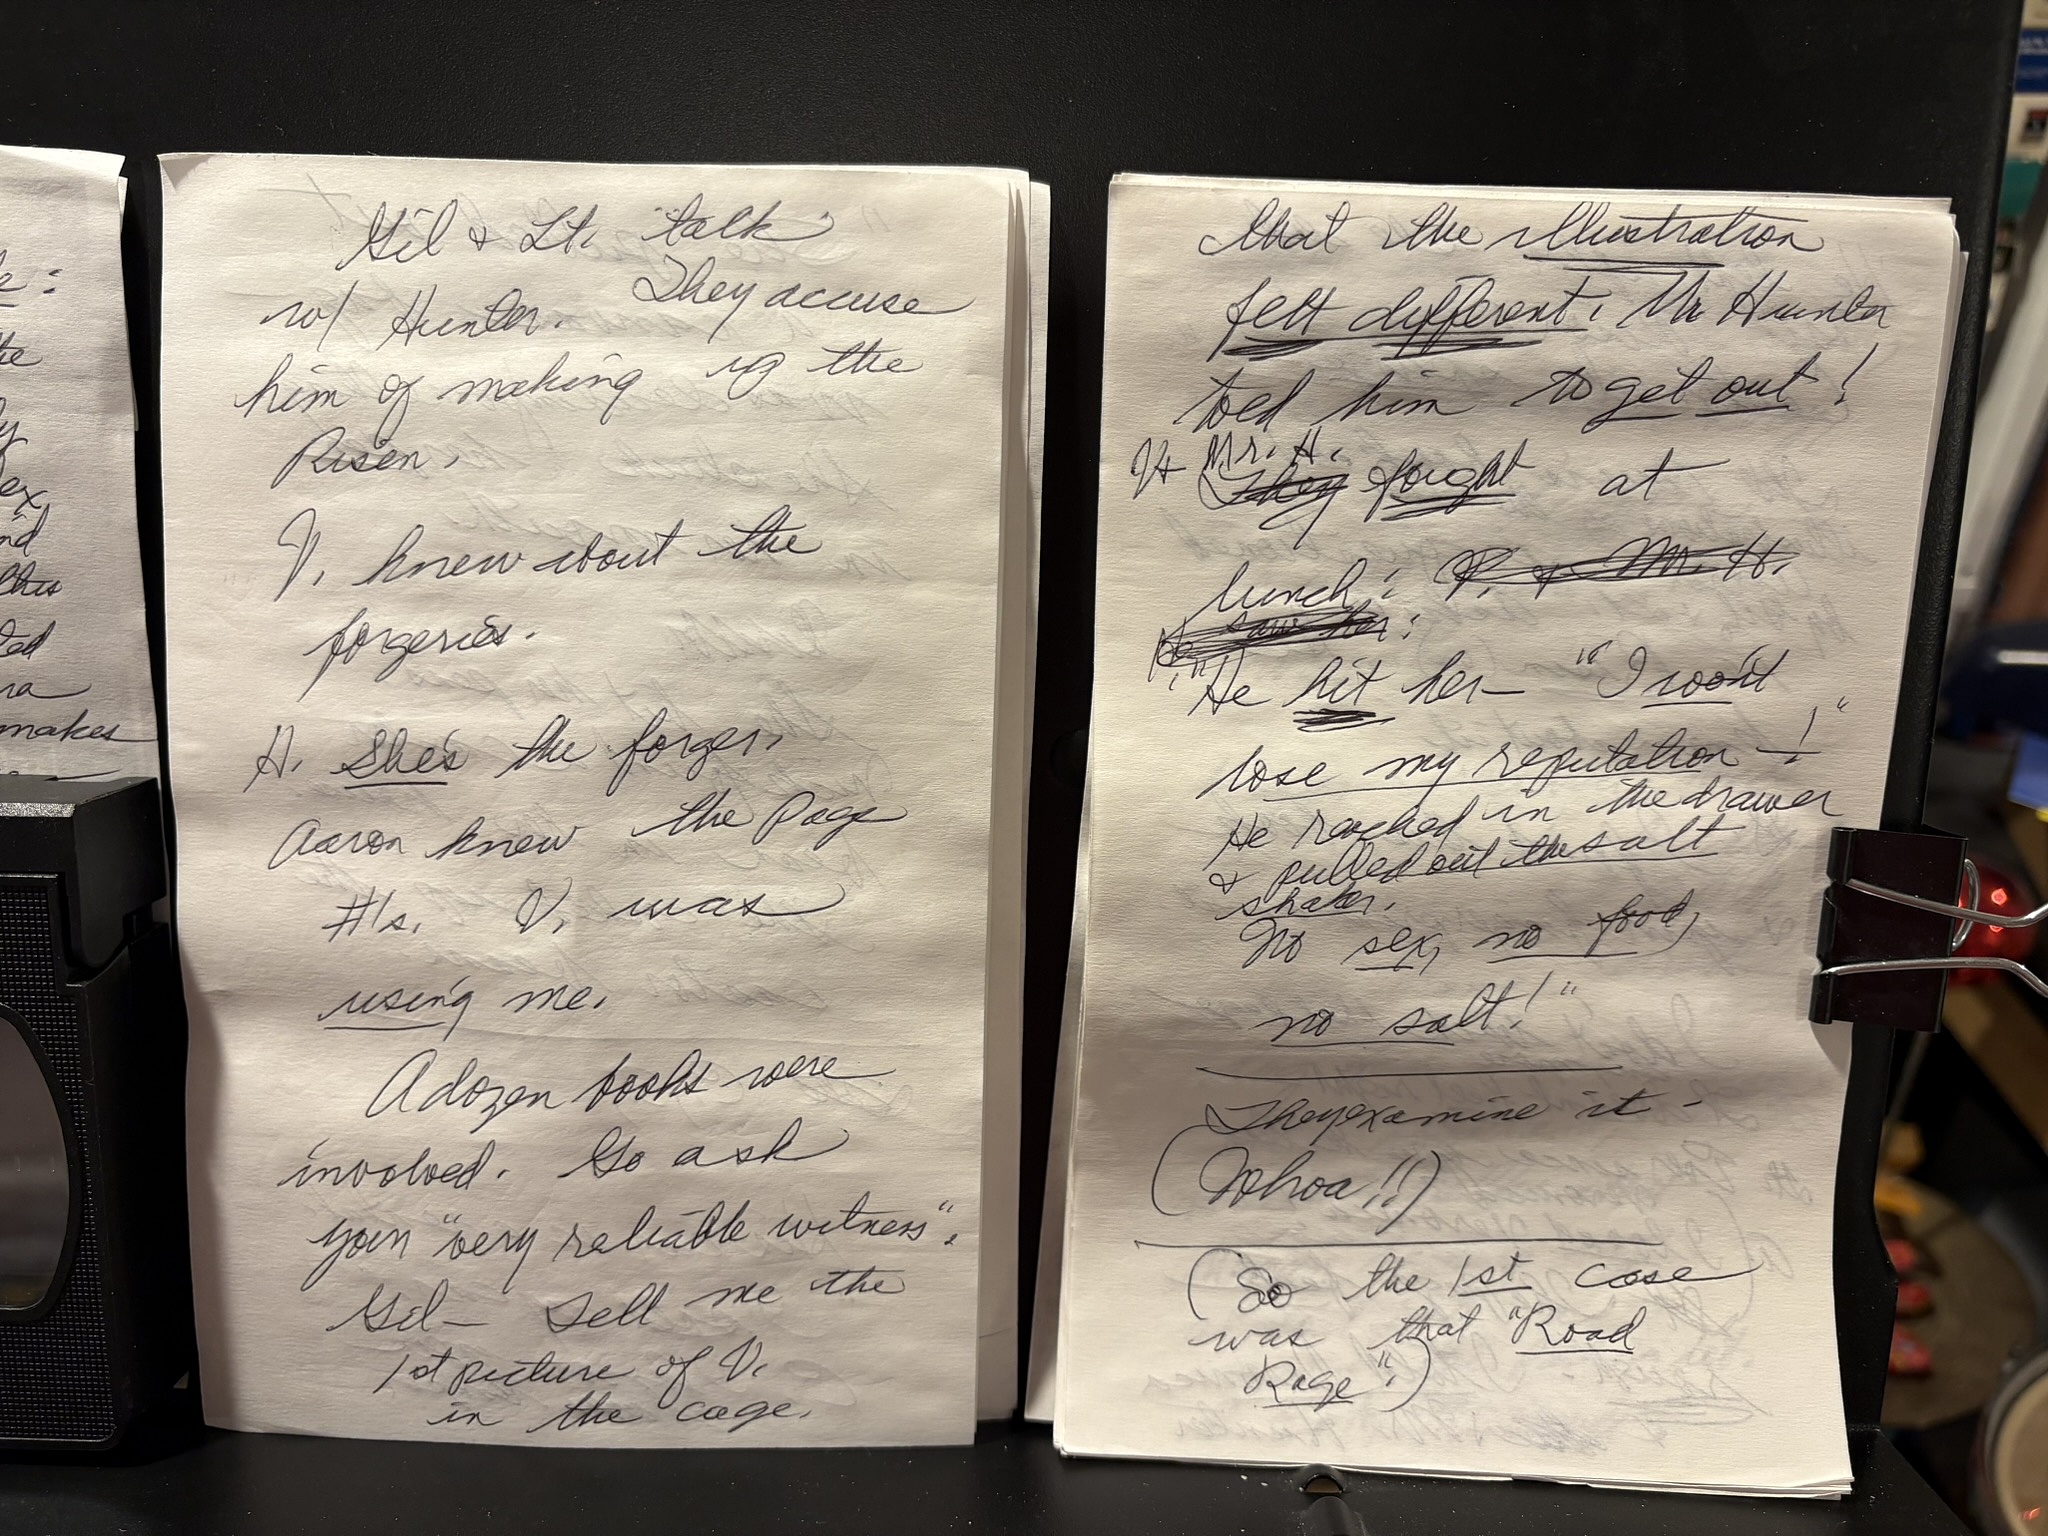 e:
the
ly
ex
nd
this
ted
ra
makes
Gil & Lt. talk
w/ Hunter. They accuse
him of making up the
Risen.
V. knew about the
forgeries.
H. She's the forger.
Aaron knew the Page
#'s. V. was
using me.
A dozen books were
involved. Go ask
your "very reliable witness".
Gil— Tell me the
1st picture of V.
in the cage.
that the illustration
felt different. Mr Hunter
told him to get out!
V+ Mr. H.
They fought at
lunch: P. & Mr. H.
saw her:
"He hit her— "I won't
lose my reputation—!"
He reached in the drawer
& pulled out the salt
shaker.
No sex, no food,
no salt!"
They examine it -
(Whoa!!)
(So the 1st case
was that "Road
Rage".)